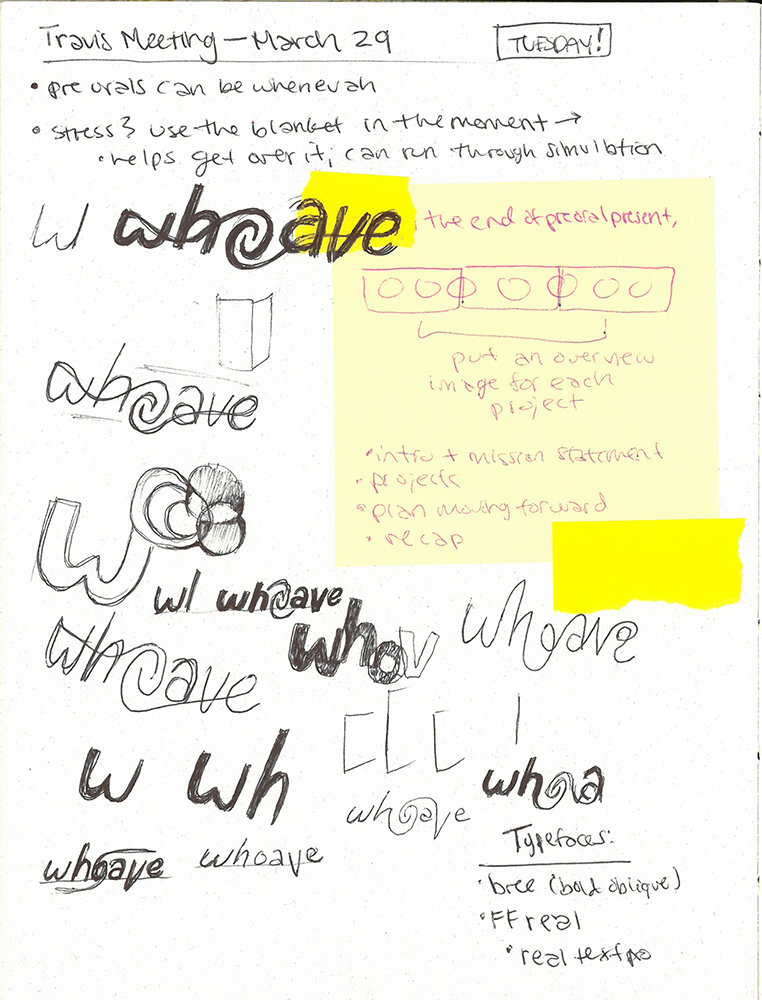 Travis Meeting – March 29
TUESDAY!
• pre orals can be whenevah
• stress } use the blanket in the moment →
• helps get over it; can run through simulation
W whoave
the end of preoral present,
put an overview
image for each
project
• intro + mission statement
• projects
• plan moving forward
• recap
whoave
W
w/ whoave
whov
whoave
whoave
w wh
whoave
whoa
whoave
whoave
Typefaces:
• bree (bold oblique)
• FF real
• real text pro